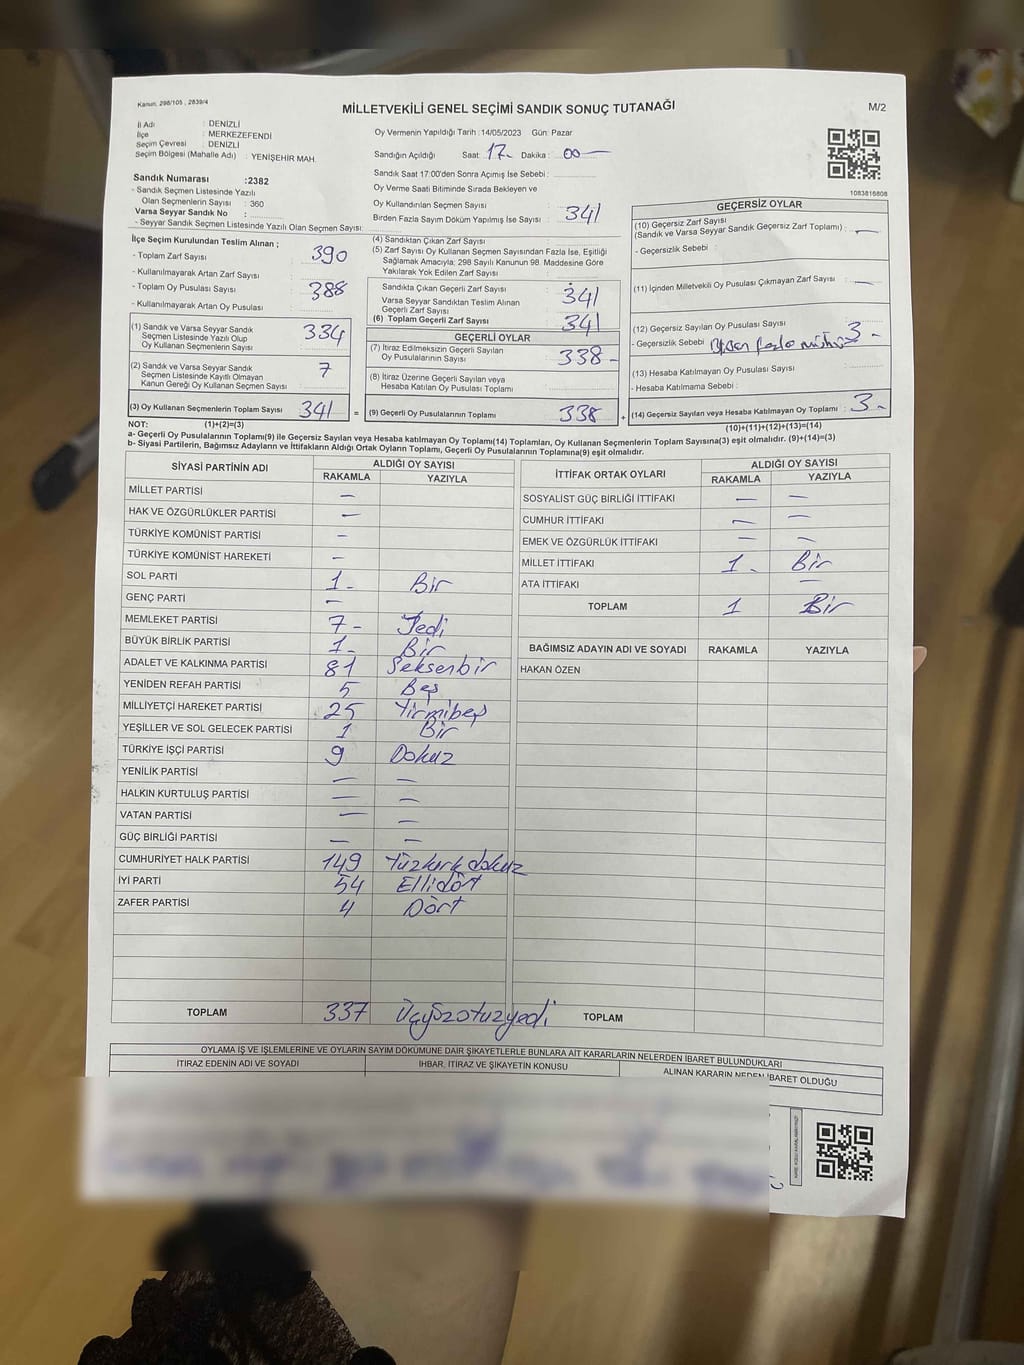 Kanun, 298/105 , 2839/4
MİLLETVEKİLİ GENEL SEÇİMİ SANDIK SONUÇ TUTANAĞI
M/2
İl Adı : DENİZLİ
İlçe : MERKEZEFENDİ
Seçim Çevresi : DENİZLİ
Seçim Bölgesi (Mahalle Adı) : YENİŞEHİR MAH.
Sandık Numarası :2382
- Sandık Seçmen Listesinde Yazılı
Olan Seçmenlerin Sayısı : 360
Varsa Seyyar Sandık No :
- Seyyar Sandık Seçmen Listesinde Yazılı Olan Seçmen Sayısı:
Oy Vermenin Yapıldığı Tarih :14/05/2023 Gün: Pazar
Sandığın Açıldığı Saat: 17- Dakika : 00
Sandık Saat 17:00'den Sonra Açımış İse Sebebi :
Oy Verme Saati Bitiminde Sırada Bekleyen ve
Oy Kullandırılan Seçmen Sayısı : 341
Birden Fazla Sayım Döküm Yapılmış İse Sayısı :
1083816808
İlçe Seçim Kurulundan Teslim Alınan ;
- Toplam Zarf Sayısı : 390
- Kullanılmayarak Artan Zarf Sayısı :
- Toplam Oy Pusulası Sayısı : 388
- Kullanılmayarak Artan Oy Pusulası :
(1) Sandık ve Varsa Seyyar Sandık
Seçmen Listesinde Yazılı Olup
Oy Kullanan Seçmenlerin Sayısı : 334
(2) Sandık ve Varsa Seyyar Sandık
Seçmen Listesinde Kayıtlı Olmayan
Kanun Gereği Oy Kullanan Seçmen Sayısı : 7
(3) Oy Kullanan Seçmenlerin Toplam Sayısı 341 =
(4) Sandıktan Çıkan Zarf Sayısı :
(5) Zarf Sayısı Oy Kullanan Seçmen Sayısından Fazla İse, Eşitliği
Sağlamak Amacıyla; 298 Sayılı Kanunun 98. Maddesine Göre
Yakılarak Yok Edilen Zarf Sayısı :
Sandıkta Çıkan Geçerli Zarf Sayısı : 341
Varsa Seyyar Sandıktan Teslim Alınan
Geçerli Zarf Sayısı :
(6) Toplam Geçerli Zarf Sayısı : 341
GEÇERLİ OYLAR
(7) İtiraz Edilmeksizin Geçerli Sayılan
Oy Pusulalarının Sayısı : 338 -
(8) İtiraz Üzerine Geçerli Sayılan veya
Hesaba Katılan Oy Pusulası Toplamı :
(9) Geçerli Oy Pusulalarının Toplamı : 338 +
GEÇERSİZ OYLAR
(10) Geçersiz Zarf Sayısı
(Sandık ve Varsa Seyyar Sandık Geçersiz Zarf Toplamı) : —
- Geçersizlik Sebebi :
(11) İçinden Milletvekili Oy Pusulası Çıkmayan Zarf Sayısı : —
(12) Geçersiz Sayılan Oy Pusulası Sayısı : 3 -
- Geçersizlik Sebebi : Birden fazla mühür
(13) Hesaba Katılmayan Oy Pusulası Sayısı :
- Hesaba Katılmama Sebebi :
(14) Geçersiz Sayılan veya Hesaba Katılmayan Oy Toplamı : 3 -
NOT: (1)+(2)=(3)
(10)+(11)+(12)+(13)=(14)
a- Geçerli Oy Pusulalarının Toplamı(9) ile Geçersiz Sayılan veya Hesaba katılmayan Oy Toplamı(14) Toplamları, Oy Kullanan Seçmenlerin Toplam Sayısına(3) eşit olmalıdır. (9)+(14)=(3)
b- Siyasi Partilerin, Bağımsız Adayların ve İttifakların Aldığı Ortak Oyların Toplamı, Geçerli Oy Pusulalarının Toplamına(9) eşit olmalıdır.
SİYASİ PARTİNİN ADI ALDIĞI OY SAYISI
RAKAMLA YAZIYLA
MİLLET PARTİSİ —
HAK VE ÖZGÜRLÜKLER PARTİSİ —
TÜRKİYE KOMÜNİST PARTİSİ -
TÜRKİYE KOMÜNİST HAREKETİ -
SOL PARTİ 1 - Bir
GENÇ PARTİ —
MEMLEKET PARTİSİ 7 - Yedi
BÜYÜK BİRLİK PARTİSİ 1 - Bir
ADALET VE KALKINMA PARTİSİ 81 Seksenbir
YENİDEN REFAH PARTİSİ 5 Beş
MİLLİYETÇİ HAREKET PARTİSİ 25 Yirmibeş
YEŞİLLER VE SOL GELECEK PARTİSİ 1 Bir
TÜRKİYE İŞÇİ PARTİSİ 9 Dokuz
YENİLİK PARTİSİ — —
HALKIN KURTULUŞ PARTİSİ — —
VATAN PARTİSİ — —
GÜÇ BİRLİĞİ PARTİSİ — —
CUMHURİYET HALK PARTİSİ 149 Yüzkırkdokuz
İYİ PARTİ 54 Ellidört
ZAFER PARTİSİ 4 Dört
TOPLAM 337 Üçyüzotuzyedi
İTTİFAK ORTAK OYLARI ALDIĞI OY SAYISI
RAKAMLA YAZIYLA
SOSYALİST GÜÇ BİRLİĞİ İTTİFAKI — —
CUMHUR İTTİFAKI — —
EMEK VE ÖZGÜRLÜK İTTİFAKI — —
MİLLET İTTİFAKI 1 - Bir
ATA İTTİFAKI —
TOPLAM 1 Bir
BAĞIMSIZ ADAYIN ADI VE SOYADI RAKAMLA YAZIYLA
HAKAN ÖZEN
TOPLAM
OYLAMA İŞ VE İŞLEMLERİNE VE OYLARIN SAYIM DÖKÜMÜNE DAİR ŞİKAYETLERLE BUNLARA AİT KARARLARIN NELERDEN İBARET BULUNDUKLARI
İTİRAZ EDENİN ADI VE SOYADI İHBAR, İTİRAZ VE ŞİKAYETİN KONUSU ALINAN KARARIN NEDEN İBARET OLDUĞU